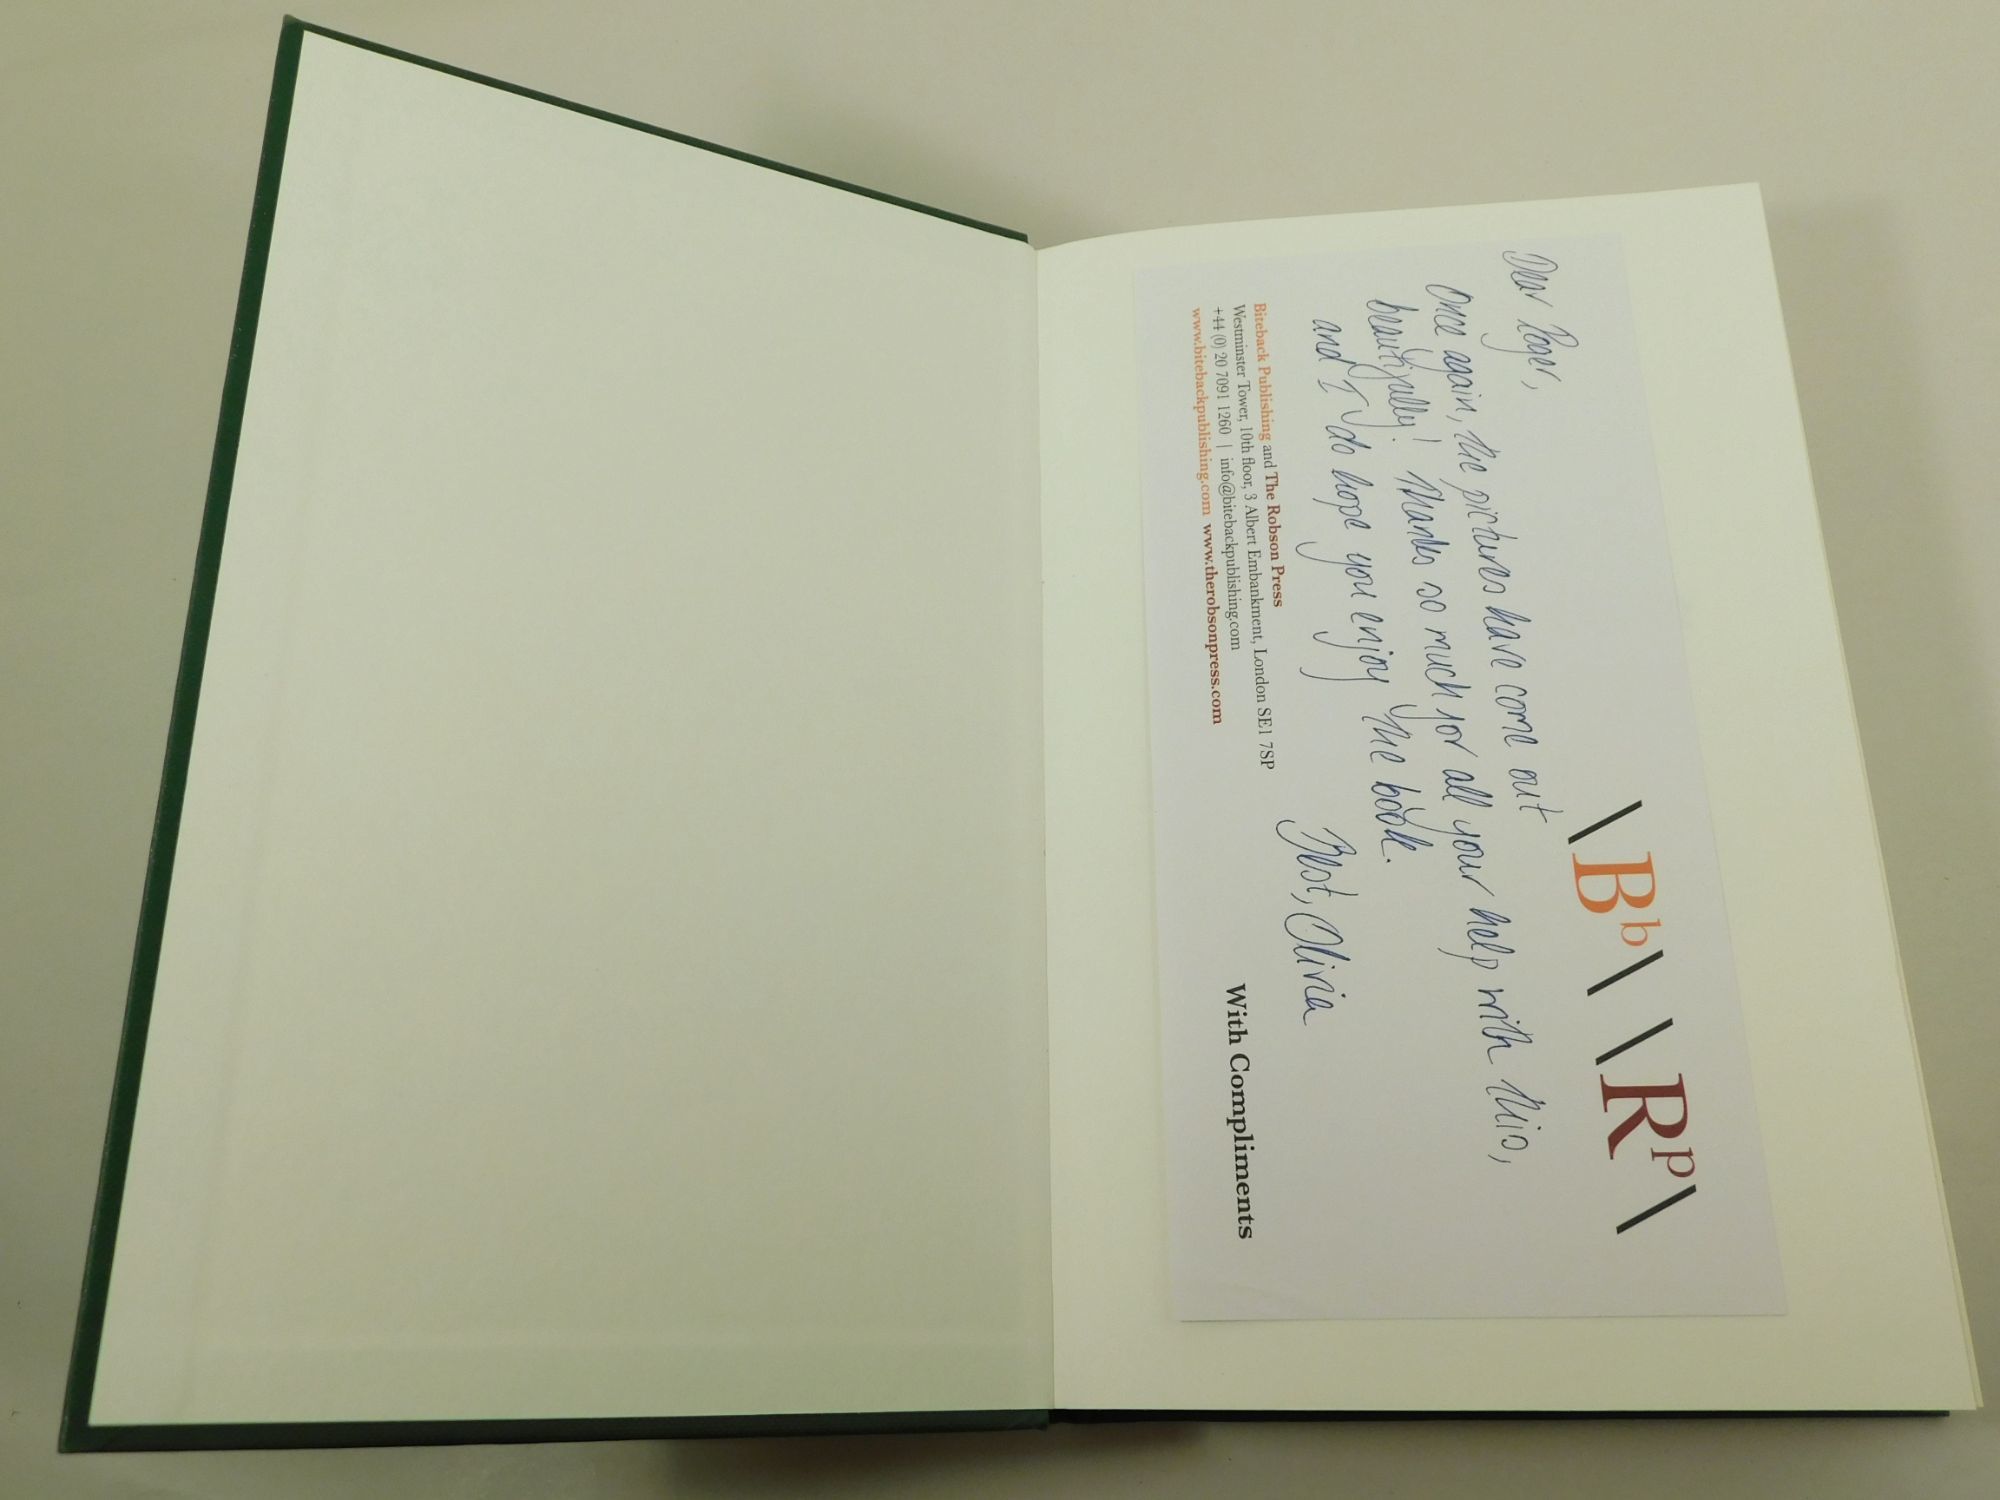 \Bb\ \Rp\
Dear Roger,
Once again, the pictures have come out
beautifully! Thanks so much for all your help with this,
and I do hope you enjoy the book.
Best, Olivia
Biteback Publishing and The Robson Press
Westminster Tower, 10th floor, 3 Albert Embankment, London SE1 7SP
+44 (0) 20 7091 1260 | info@bitebackpublishing.com
www.bitebackpublishing.com www.therobsonpress.com
With Compliments